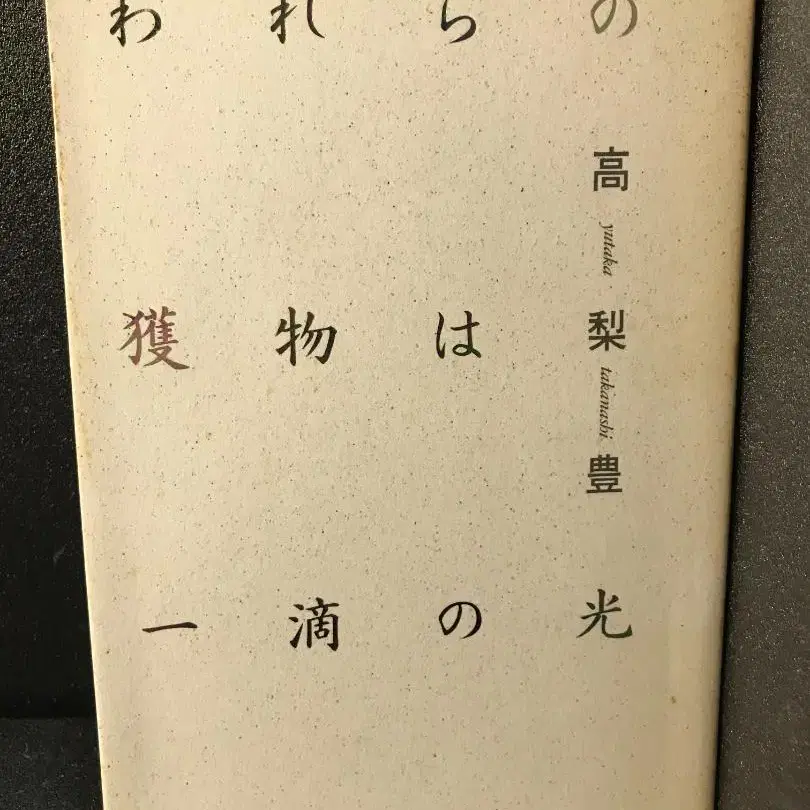 われらの
獲物は
一滴の光
高梨豊
yutaka
takanashi